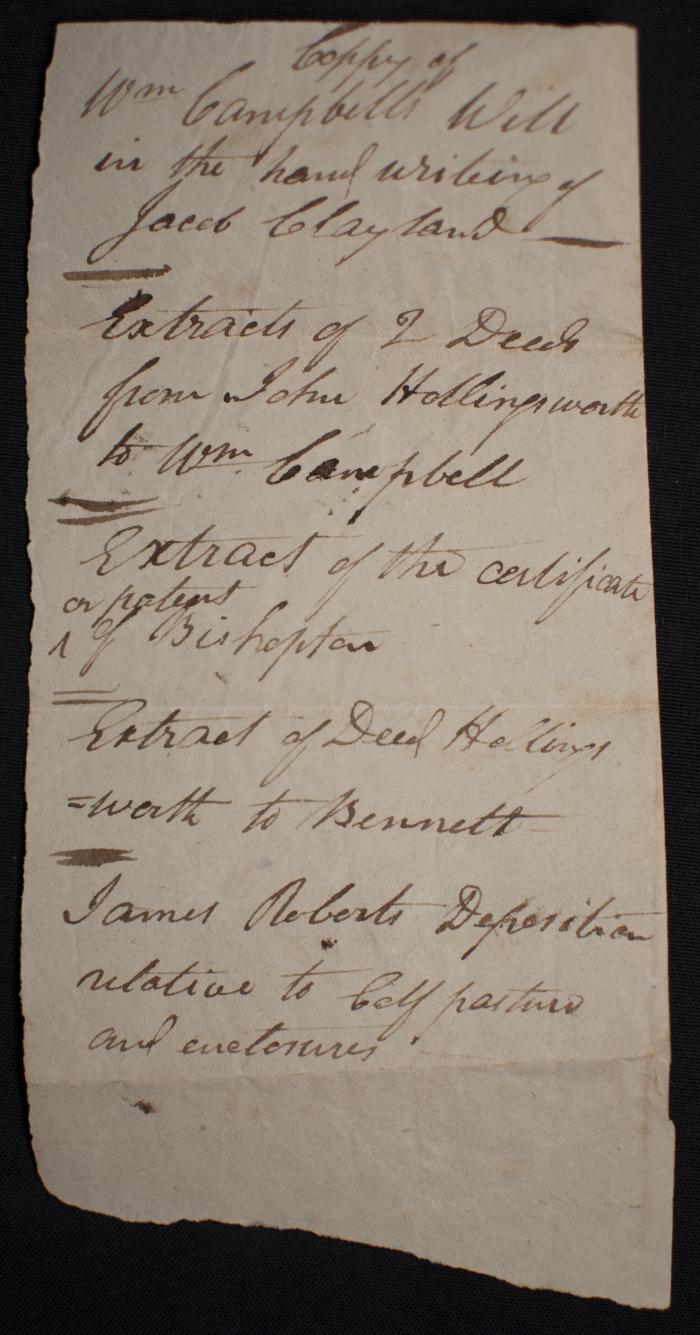 Coppy of
Wm Campbells Will
in the hand writing of
Jacob Clayland —
Extracts of 2 Deeds
from John Hollingsworth
to Wm Campbell
Extract of the certificate
or patent
^ of Bishopton
Extract of Deed Hollings
=worth to Bennett
James Roberts Deposition
relative to Calf pasture
and enclosures